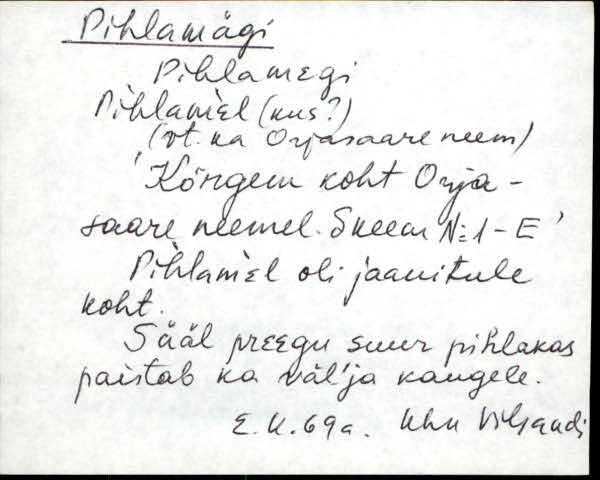 Pihlamägi
Pihlamεgi
Pihlamiel (kus?)
(vt. ka Orjasaare neem)
'Kõrgem koht Orja-
saare neemel. Skeem N:1-E'
Pihlamiel oli jaanitule
koht.
Sääl prεεgu suur pihlakas
paistab ka väl'ja kaugele.
E. K. 69a.